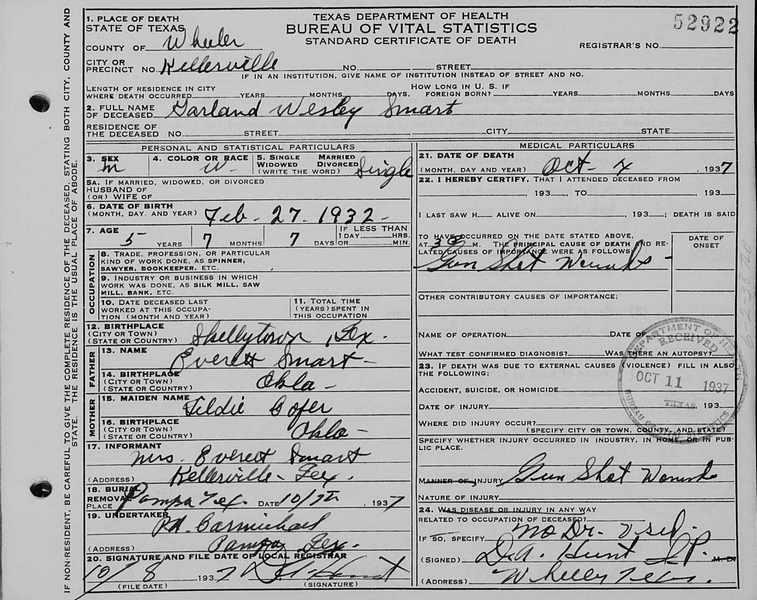 TEXAS DEPARTMENT OF HEALTH
BUREAU OF VITAL STATISTICS
STANDARD CERTIFICATE OF DEATH
52922
REGISTRAR'S NO.
1. PLACE OF DEATH
STATE OF TEXAS
COUNTY OF Wheeler
CITY OR
PRECINCT NO. Kellerville NO. STREET
IF IN AN INSTITUTION, GIVE NAME OF INSTITUTION INSTEAD OF STREET AND NO.
LENGTH OF RESIDENCE IN CITY
WHERE DEATH OCCURRED YEARS MONTHS DAYS. HOW LONG IN U. S. IF FOREIGN BORN? YEARS MONTHS DAYS
2. FULL NAME
OF DECEASED Garland Wesley Smart
RESIDENCE OF
THE DECEASED NO. STREET CITY STATE
PERSONAL AND STATISTICAL PARTICULARS
3. SEX M
4. COLOR OR RACE W.
5. SINGLE MARRIED
WIDOWED DIVORCED
(WRITE THE WORD) Single
5A. IF MARRIED, WIDOWED, OR DIVORCED
HUSBAND OF
(OR) WIFE OF
6. DATE OF BIRTH
(MONTH, DAY, AND YEAR) Feb - 27 - 1932 -
7. AGE 5 YEARS 7 MONTHS 7 DAYS
IF LESS THAN
1 DAY HRS.
OR MIN.
OCCUPATION
8. TRADE, PROFESSION, OR PARTICULAR
KIND OF WORK DONE, AS SPINNER,
SAWYER, BOOKKEEPER, ETC.
9. INDUSTRY OR BUSINESS IN WHICH
WORK WAS DONE, AS SILK MILL, SAW
MILL, BANK, ETC.
10. DATE DECEASED LAST
WORKED AT THIS OCCUPA-
TION (MONTH AND YEAR)
11. TOTAL TIME
(YEARS) SPENT IN
THIS OCCUPATION
12. BIRTHPLACE
(CITY OR TOWN)
(STATE OR COUNTRY) Shellytown, Tex.
FATHER
13. NAME Everett Smart -
14. BIRTHPLACE
(CITY OR TOWN)
(STATE OR COUNTRY) Okla -
MOTHER
15. MAIDEN NAME Tildie Cofer
16. BIRTHPLACE
(CITY OR TOWN)
(STATE OR COUNTRY) Okla -
17. INFORMANT
Mrs. Everett Smart
(ADDRESS) Kellerville - Tex.
18. BURIAL
REMOVAL
PLACE Pampa Tex. DATE 10/7th, 1937
19. UNDERTAKER
Carmichael
(ADDRESS) Pampa, Tex.
20. SIGNATURE AND FILE DATE OF LOCAL REGISTRAR
10 / 8 1937 Hunt
(FILE DATE) (SIGNATURE)
MEDICAL PARTICULARS
21. DATE OF DEATH
(MONTH, DAY AND YEAR) Oct - 4, 1937
22. I HEREBY CERTIFY, THAT I ATTENDED DECEASED FROM
, 193 TO , 193
I LAST SAW H ALIVE ON , 193 ; DEATH IS SAID
TO HAVE OCCURRED ON THE DATE STATED ABOVE,
AT M. THE PRINCIPAL CAUSE OF DEATH AND RE-
LATED CAUSES OF IMPORTANCE WERE AS FOLLOWS:
DATE OF
ONSET
Gun Shot Wounds
OTHER CONTRIBUTORY CAUSES OF IMPORTANCE:
NAME OF OPERATION DATE OF
WHAT TEST CONFIRMED DIAGNOSIS? WAS THERE AN AUTOPSY?
23. IF DEATH WAS DUE TO EXTERNAL CAUSES (VIOLENCE) FILL IN ALSO
THE FOLLOWING:
ACCIDENT, SUICIDE, OR HOMICIDE
DATE OF INJURY , 193
WHERE DID INJURY OCCUR?
(SPECIFY CITY OR TOWN, COUNTY, AND STATE)
SPECIFY WHETHER INJURY OCCURRED IN INDUSTRY, IN HOME, OR IN PUB-
LIC PLACE.
MANNER OF INJURY Gun Shot Wounds
NATURE OF INJURY
24. WAS DISEASE OR INJURY IN ANY WAY
RELATED TO OCCUPATION OF DECEASED?
IF SO, SPECIFY No Dr. Used.
(SIGNED) Hunt J.P. M. D.
(ADDRESS) Wheeler Texas.
DEPARTMENT OF HEALTH
RECEIVED
OCT 11 1937
TEXAS
BUREAU VITAL STATISTICS
IF NON-RESIDENT, BE CAREFUL TO GIVE THE COMPLETE RESIDENCE OF THE DECEASED, STATING BOTH CITY, COUNTY AND
STATE. THE RESIDENCE IS THE USUAL PLACE OF ABODE.